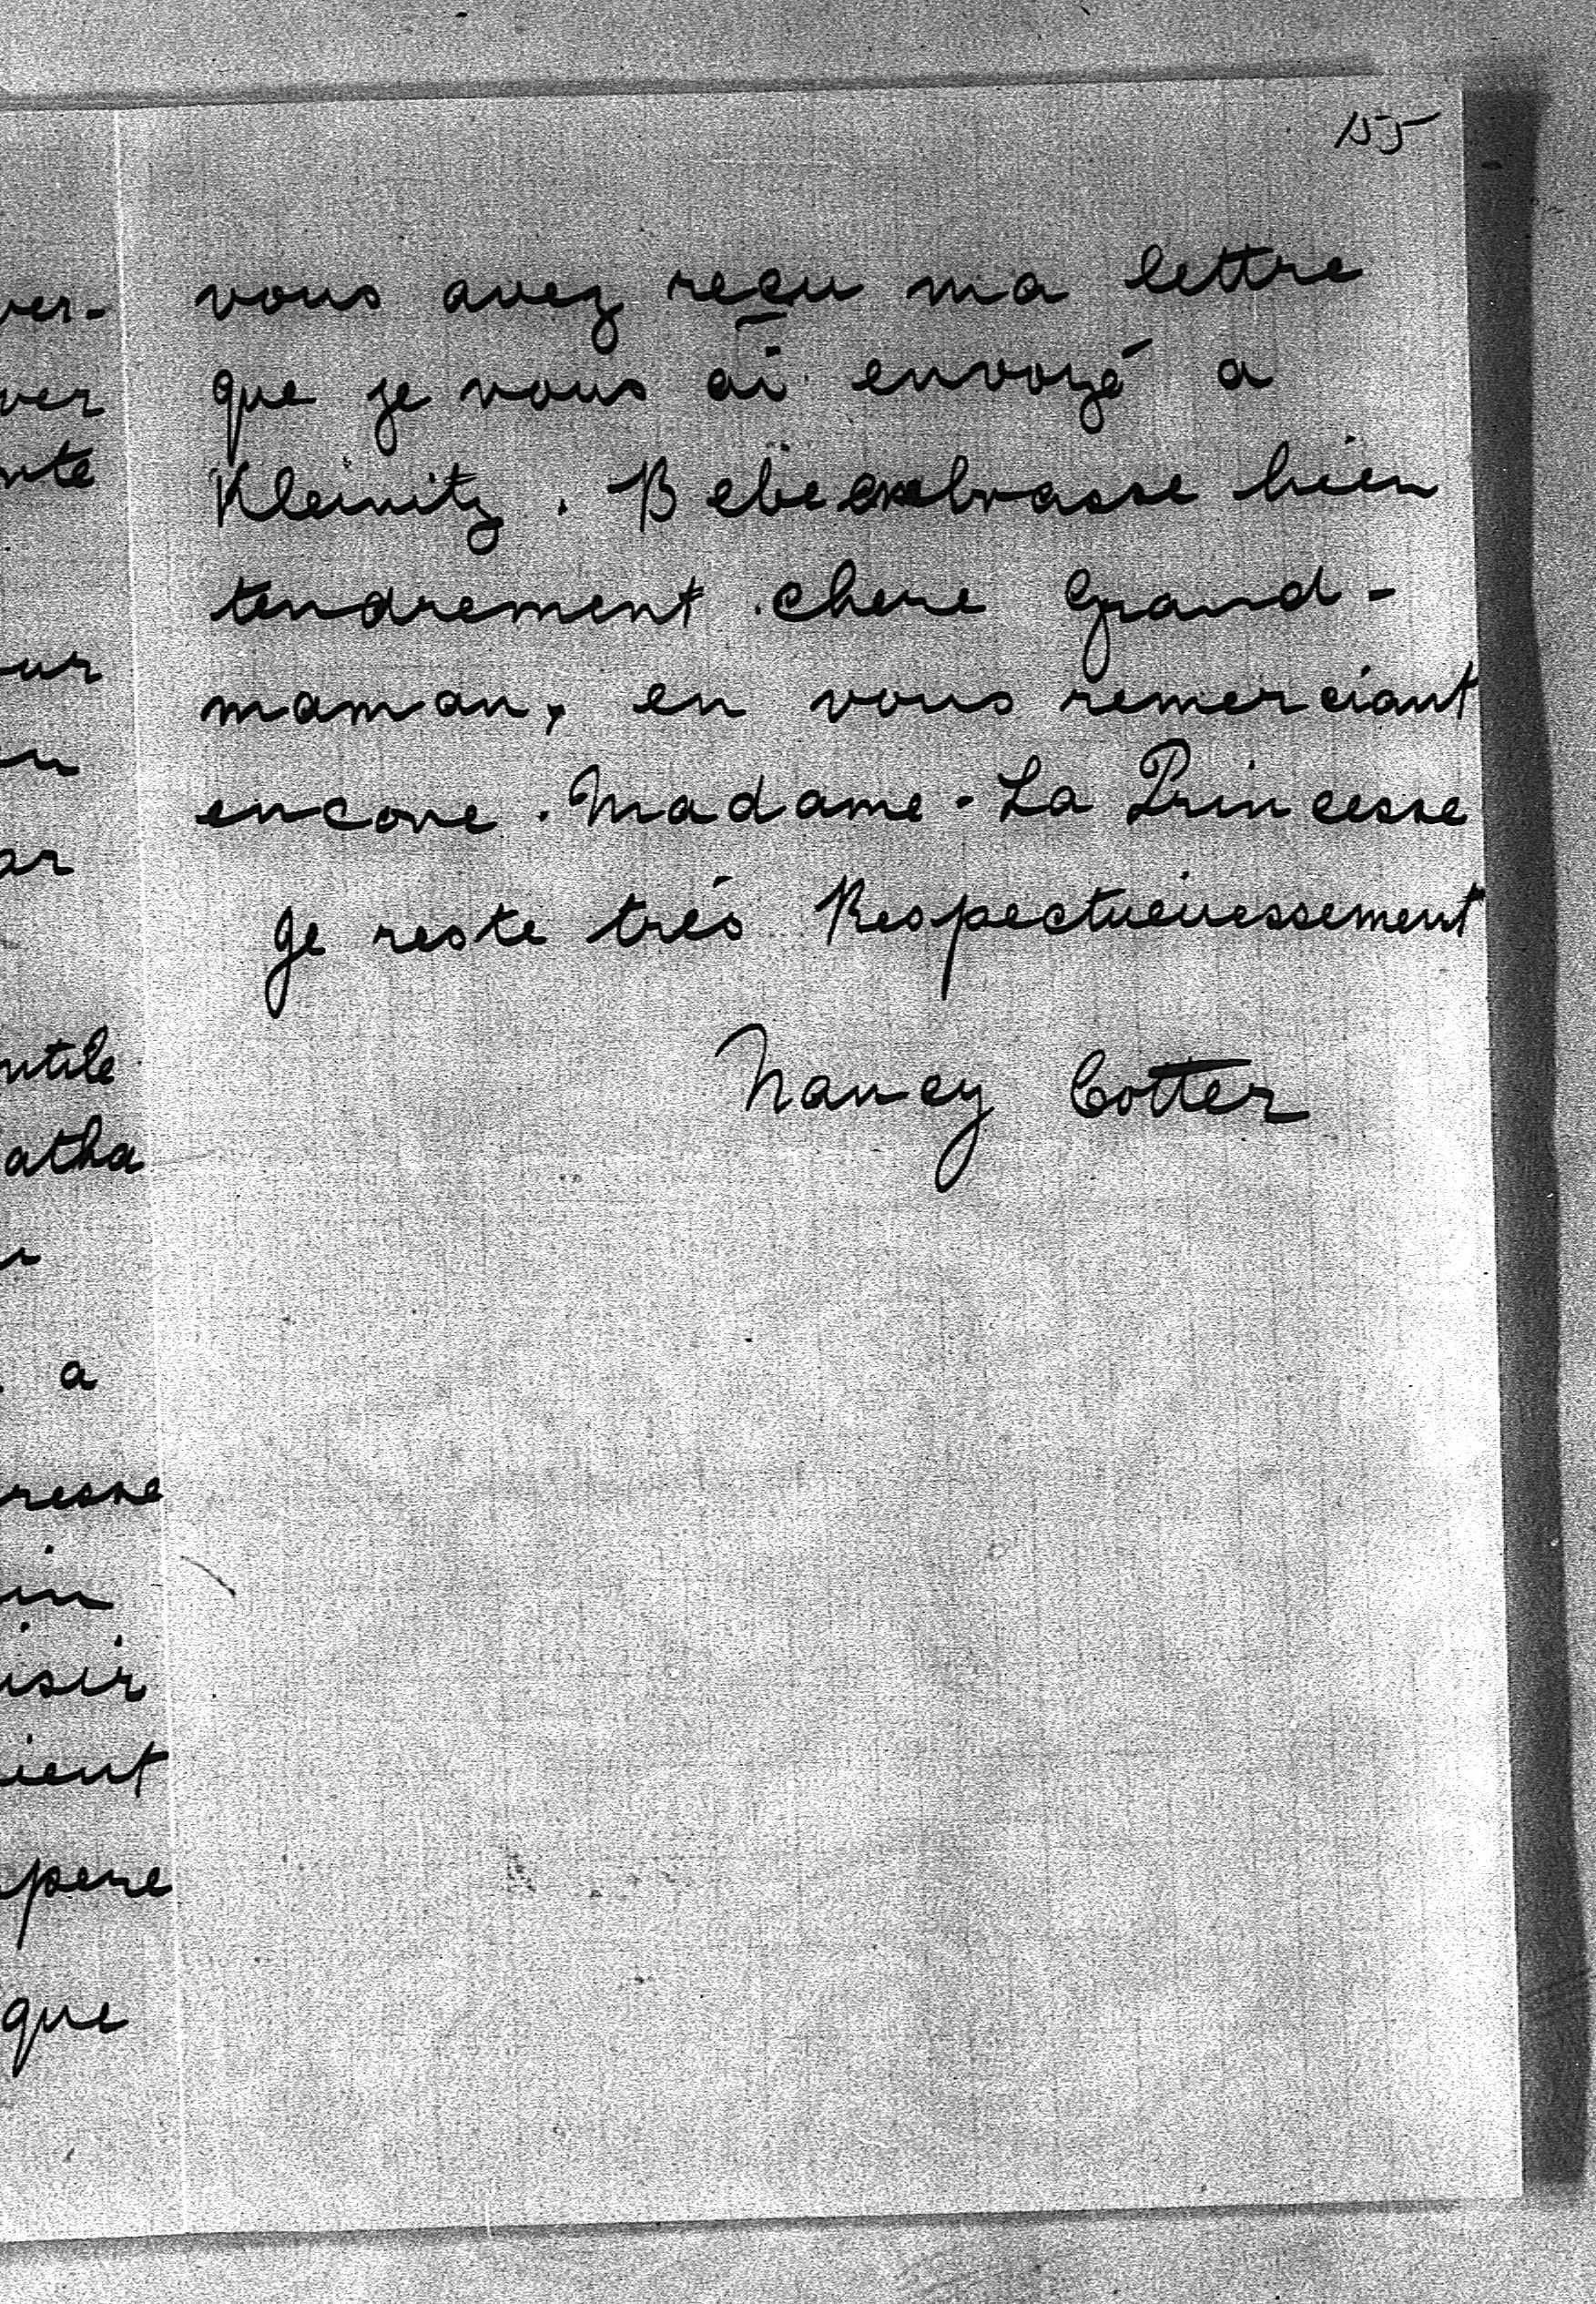 155
vous avez reçu ma lettre
que je vous ai envoyé a
Kleinitz. Bebe embrasse bien
tendrement chere Grand-
maman, en vous remerciant
encore. Madame. La Princesse
Je reste trés Respectueuessement
Nancy Cotter
ver-
ver
nte
ur
en
ar
ntile
atha
r
. a
resse
in
isir
ient
pere
que